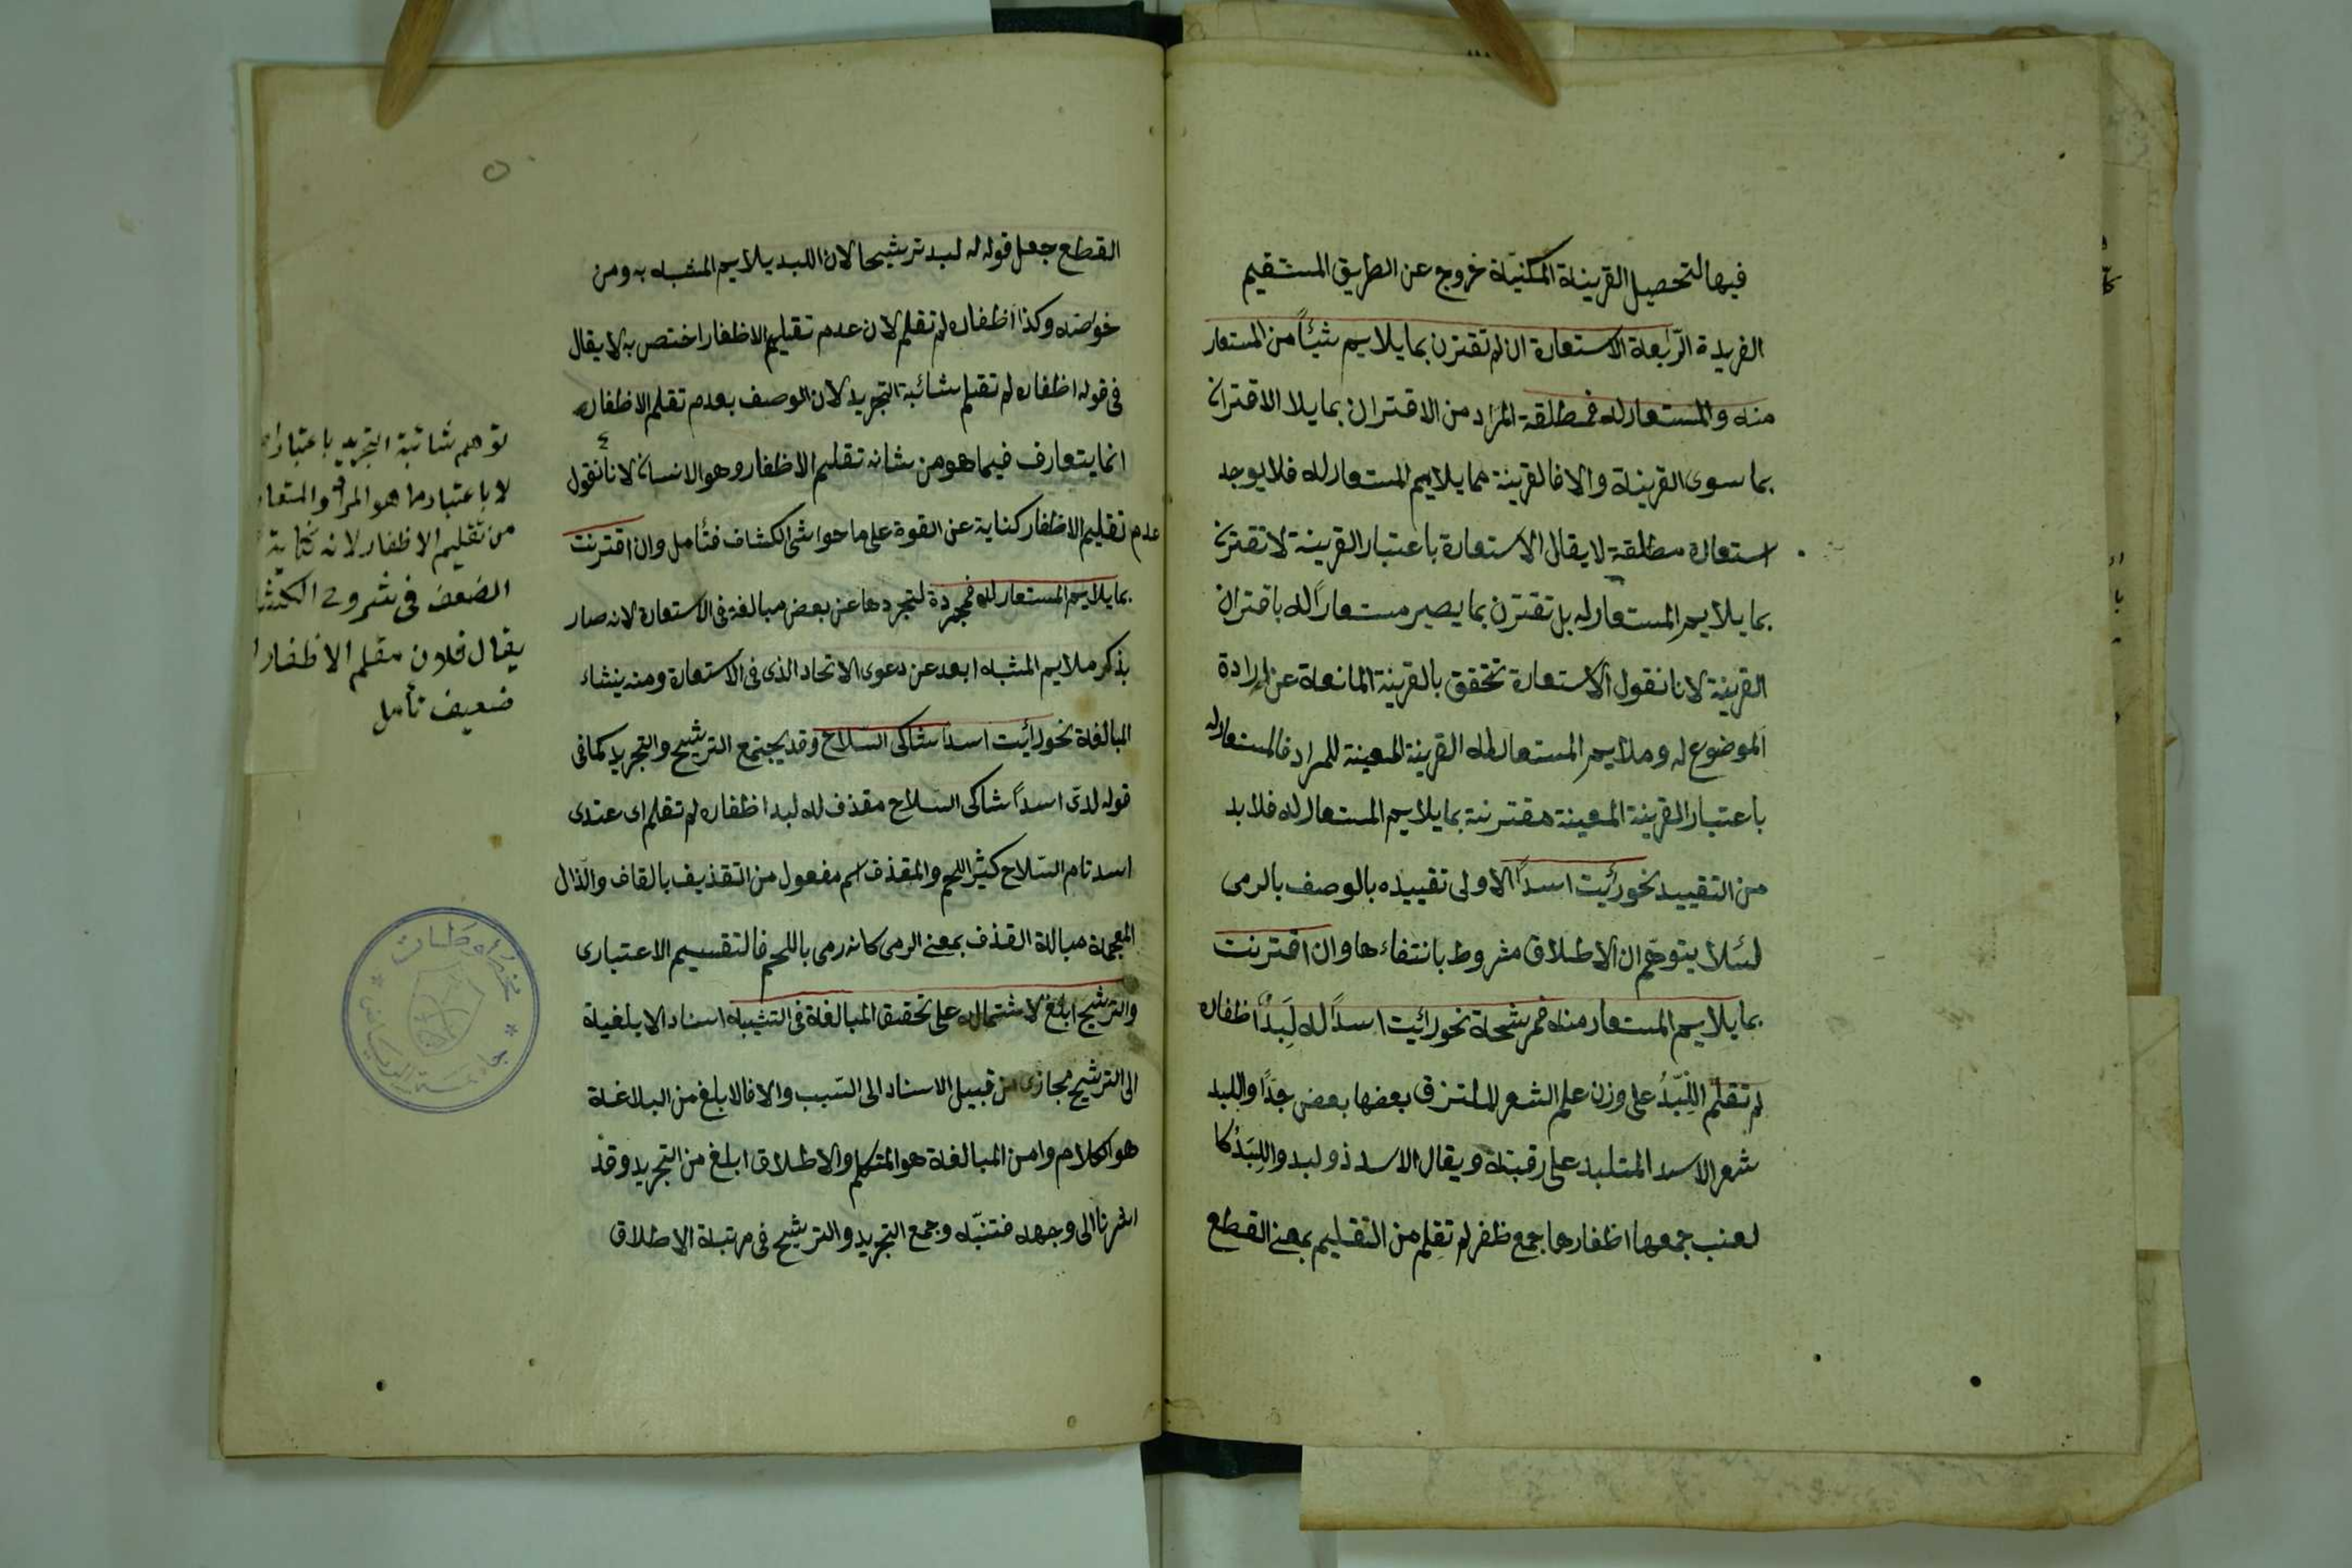 فيها لتحصيل القرينة المكنيّة خروج عن الطريق المستقيم
الفريدة الرّابعة الاستعارة ان لم تقترن بما يلايم شيئاً من المستعار
منه والمستعار له فمطلقة المراد من الاقتران بما يلا الاقتران
بما سوى القرينة والا فالقرينة مما يلايم المستعار له فلا يوجد
استعارة مطلقة لا يقال الاستعارة باعتبار القرينة لا تقترن
بما يلايم المستعار له بل تقترن بما يصير مستعاراً له باقتران
القرينة لانا نقول الاستعارة تتحقق بالقرينة المانعة عن إرادة
الموضوع له وملايم المستعار له القرينة المعينة للمراد فالمستعار له
باعتبار القرينة المعينة مقترنة بما يلايم المستعار له فلا بد
من التقييد نحو رئيت اسداً الاولى تقييده بالوصف بالرمى
لئلا يتوهّم ان الاطلاق مشروط بانتفاءها وان اقترنت
بما يلايم المستعار منه فمرشحة نحو رائيت اسداً له لِبَدٌ اظفاره
لم تقلّم اللِّبَدُ على وزن علم الشعر الملتزق بعضها بعض جدّا واللبد
شعر الاسد المتلبد على رقبته ويقال الاسد ذو لبد واللِبَدُ كا
لعنب جمعها اظفارها جمع ظفر لم تقلم من التقليم بمعنى القطع
القطع جعل قوله له لبد ترشيحا لان اللبد يلايم المشبه به ومن
خواصه وكذا اظفاره لم تقلم لان عدم تقليم الاظفار اختص به لا يقال
فى قوله اظفاره لم تقلم شائبة التجريد لان الوصف بعدم تقلم الاظفار
انما يتعارف فيما هو من شانه تقليم الاظفار وهو الانسان لانا نقول
عدم تقليم الاظفار كناية عن القوة على ما حواشى الكشاف فتأمل وان اقترنت
بما يلايم المستعار له فمجردة لتجردها عن بعض مبالغة فى الاستعارة لانه صار
بذكر ملايم المشبه ابعد عن دعوى الاتحاد الذى فى الاستعارة ومنه ينشاء
المبالغة نحو رائيت اسدا شاكى السلاح وقد يجتمع الترشيح والتجريد كما فى
قوله لدىّ اسداً شاكى السّلاح مقذف له لبد اظفاره لم تقلم اى عندى
اسد تام السّلاح كثير اللحم والمقذف اسم مفعول من التقذيف بالقاف والذّال
المعجمة مبالغة القذف بمعنى الرمى كانه رمى باللحم فالتقسيم الاعتبارى
والترشيح ابلغ لاشتماله على تحقيق المبالغة فى التشبيه اسناد الابلغية
الى الترشيح مجازى من قبيل الاسناد الى السّبب والا فالابلغ من البلاغة
هو الكلام وامن المبالغة هو المتكلم والاطلاق ابلغ من التجريد وقد
اشرنا الى وجهه فتنبّه وجمع التجريد والترشيح فى مرتبة الاطلاق
توهم شائبة التجريد باعتبار
لا باعتبار ما هو المراد والمتعا
من تقليم الاظفار لانه كناية
الضعف فى شروح الكشا
يقال فلان مقلم الاظفار
ضعيف تأمل